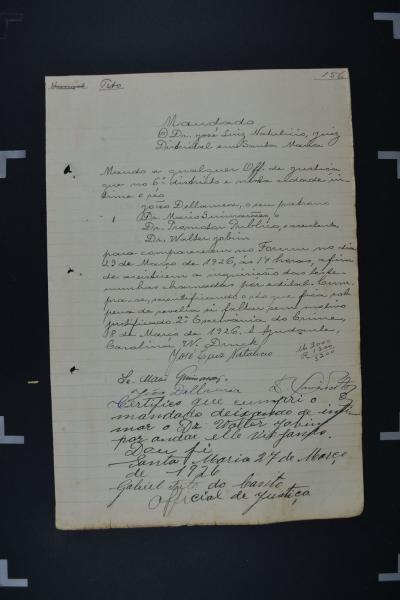 Tito
156
Mandado
O Dr. José Luiz Natalicio, juiz
Districtal em Santa Maria
Mando a qualquer Off. de justiça
que no 6º districto e nesta cidade in-
time o réo
João Dellamea, o seu patrono
Dr. Mario Guimarães, o
Dr. Promotor Publico, o assistente
Dr. Walter Jobim
para comparecerem no Forum no dia
23 de Março de 1926, ás 14 horas, a fim
de assistirem a inquirição das teste-
munhas chamadas por edital. Cum-
pra-se, scientificando o réo que fica sob
pena de revelia si faltar sem motivo
justificado. 2º Escrivania do Crime,
18 de Março de 1926. O Ajudante,
W. Druck
José Luiz Natalicio
João Dellamea
Certifico que cumpri o
mandado deixando de inti-
mar o Dr Walter Jobim
por andar elle viajando.
Dou fé
Santa Maria 27 de Março
de 1926
Gabriel do Canto
Official de Justiça